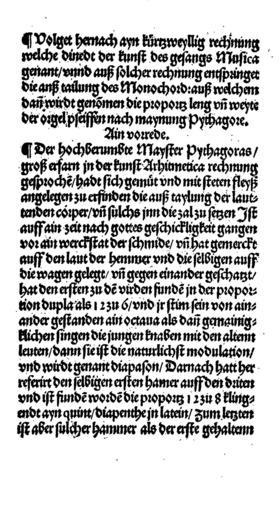 ¶ Volget hernach ayn kürtzweyllig rechnung
welche dinedt der kunst des gesangs Musica
genant/vnnd auß solcher rechnung entspringet
die auß tailung des Monochord: auß welchem
dañ wirdt genomen die proportz leng vñ weyte
der orgel pfeiffen nach maynung Pythagore.
Ain vorrede.
¶ Der hochberumbte Mayster Pythagoras/
groß erfarn in der kunst Arhitmetica rechnung
gesprochē/hadt sich gemüt vnd mit steten fleyß
angelegen zu erfinden die auß taylung der laut-
tenden cörper/vñ sulchs inn die zal zu setzen Ist
auff ain zeit nach gottes geschickligkeit gangen
vor ain werckstat der schmide/vñ hat gemerckt
auff den laut der hemmer vnd die selbigen auff
die wagen gelegt/vñ gegen einander geschatzt/
hat den ersten zu dē virden fundē in der propor-
tion dupla als 12 zu 6/vnd jr stim sein von ain-
ander gestanden ain octaua als dañ gemainig-
klichen singen die jungen knaben mit den altenn
leuten/dann sie ist die naturlichst modulation/
vnd wirdt genant diapason/Darnach hatt her
referirt den selbigen ersten hamer auff den driten
vnd ist fundē wordē die proportz 12 zu 8 kling-
endt ayn quint/diapenthe in latein/Zum letzten
ist aber sulcher hammer als der erste gehaltenn